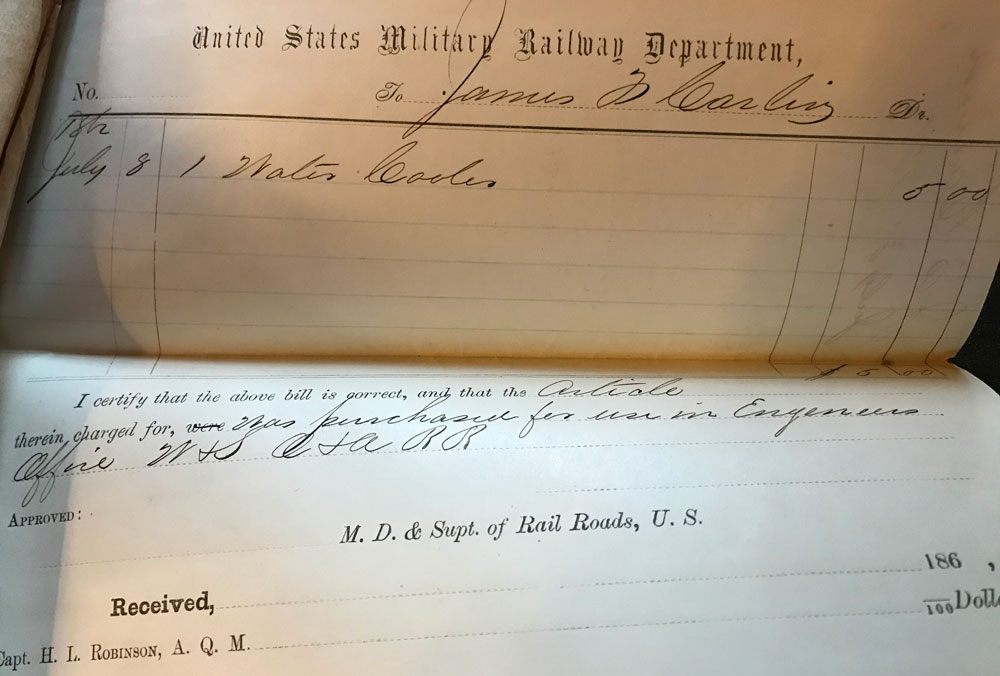 United States Military Railway Department,
No. To James B Carlin Dr.
July 8 1 Water Cooler 5 00
$ 5 00
I certify that the above bill is correct, and that the Article
therein charged for, were was purchased for use in Engeneers
Office W & S O & A RR
APPROVED:
M. D. & Supt. of Rail Roads, U. S.
186 ,
Received,
100 Dolla
Capt. H. L. ROBINSON, A. Q. M.